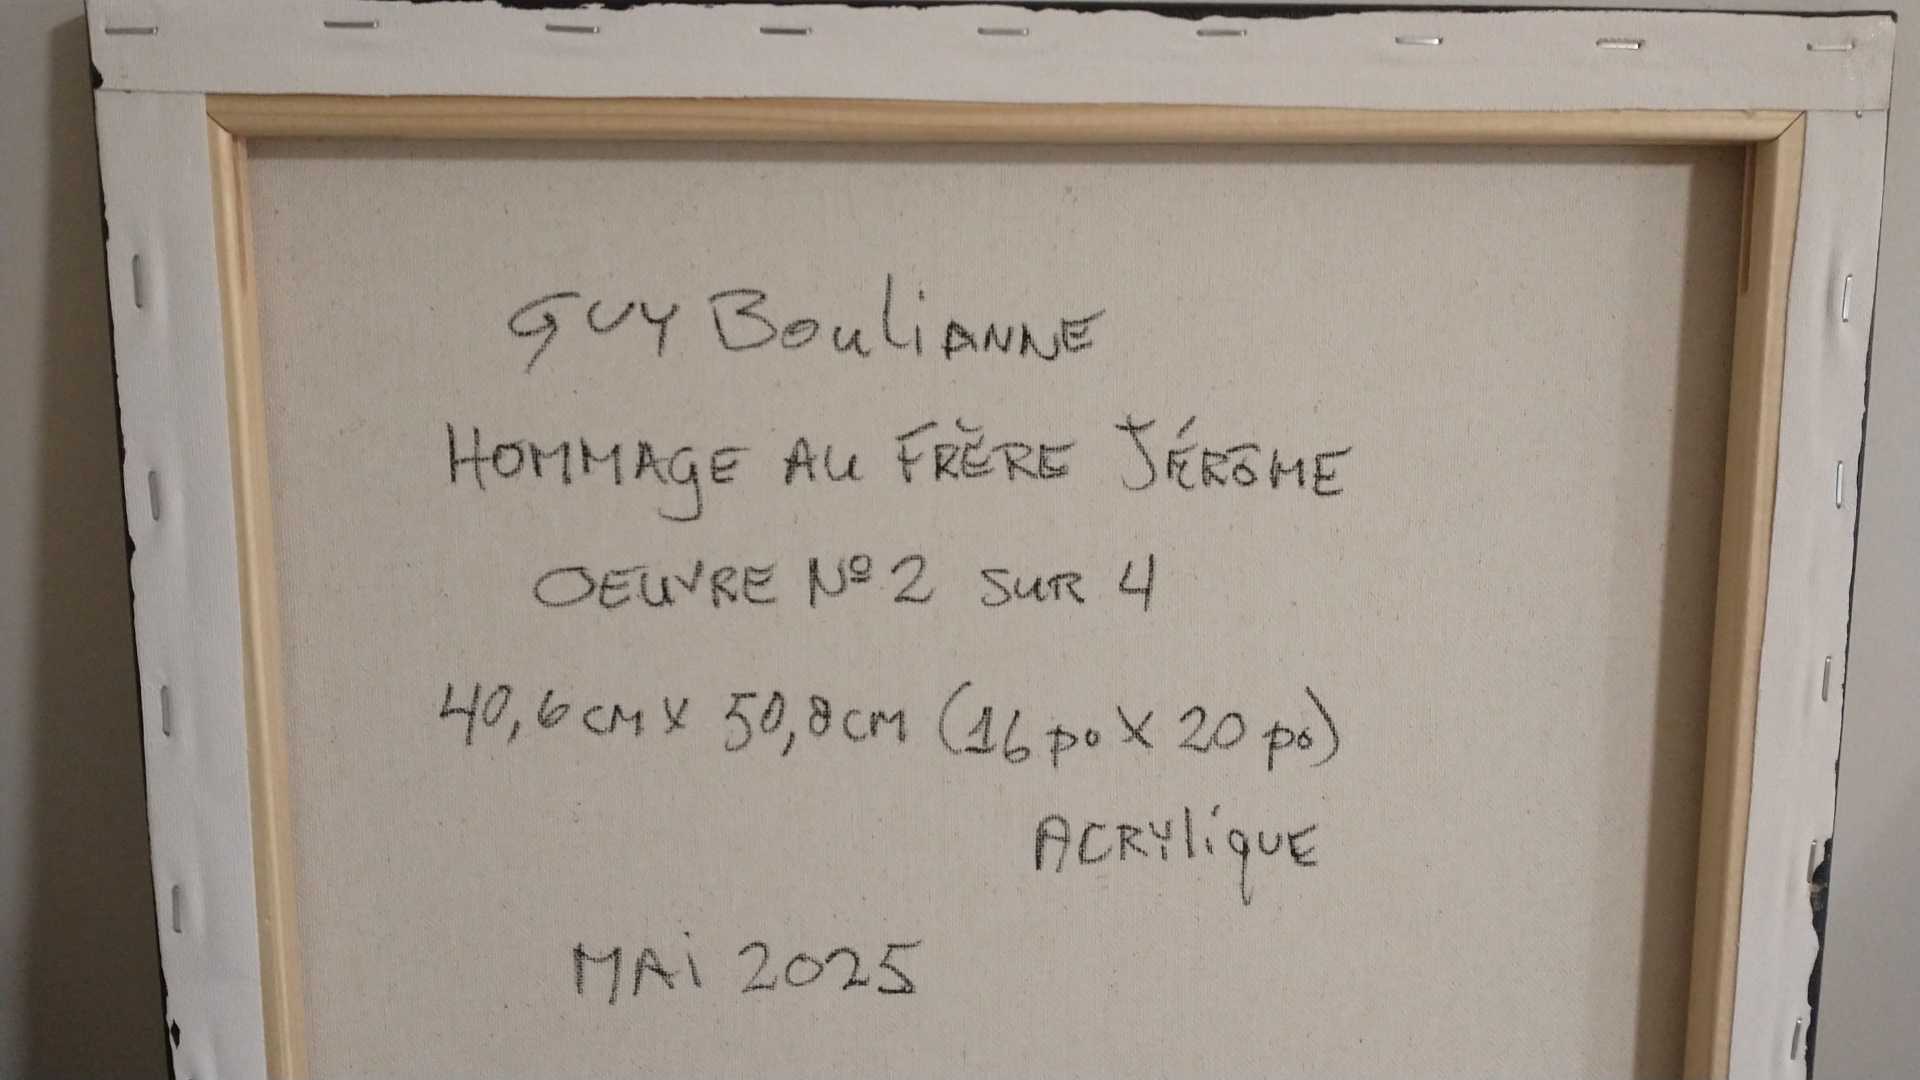 GUY BOULIANNE
HOMMAGE AU FRÈRE JÉRÔME
OEUVRE Nº 2 SUR 4
40,6 cm x 50,8 cm (16 po X 20 po)
ACRYLIQUE
MAI 2025